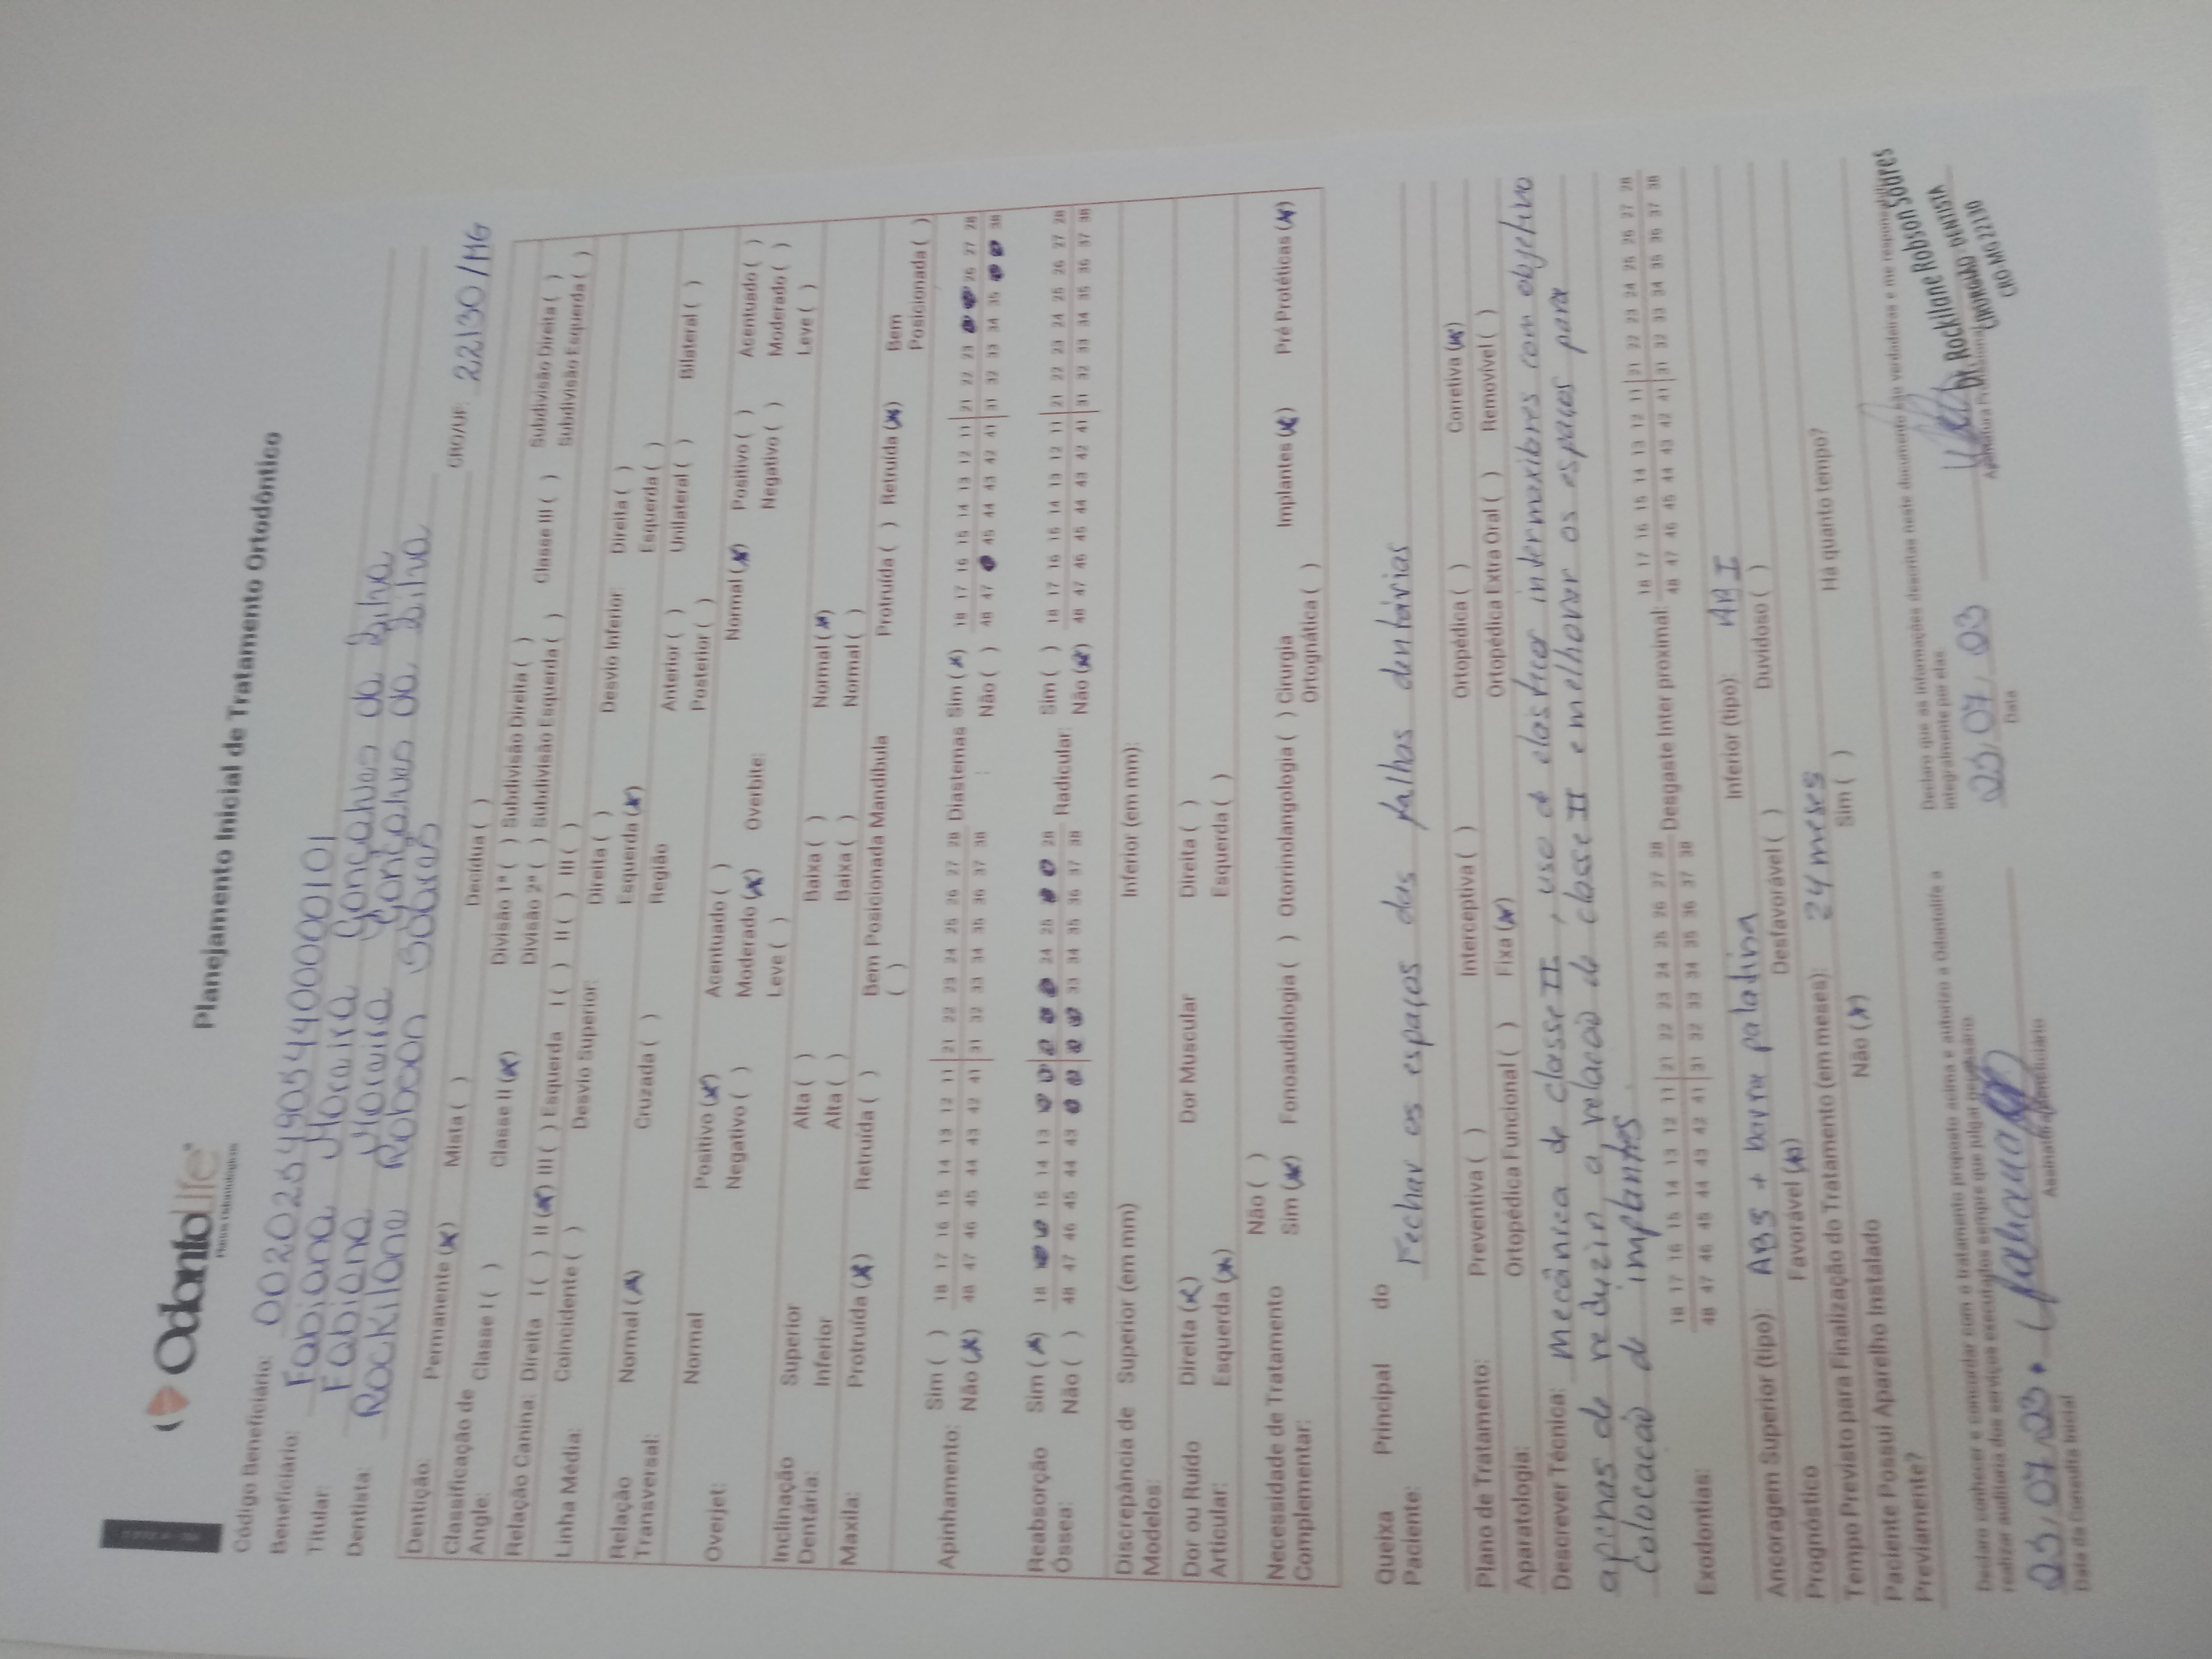 OdontoLife
Planos Odontológicos
Planejamento Inicial de Tratamento Ortodôntico
Código Beneficiário: 00202549054400000101
Beneficiário: Fabiana Moraira Gonçalves da Silva
Titular: Fabiana Moraira Gonçalves da Silva
Dentista: Rockilane Robson Soares CRO/UF: 22130/MG
Dentição: Permanente (x) Mista ( ) Decídua ( )
Classificação de Angle: Classe I ( ) Classe II (x) Divisão 1ª ( ) Subdivisão Direita ( ) Classe III ( ) Subdivisão Direita ( )
Divisão 2ª ( ) Subdivisão Esquerda ( ) Subdivisão Esquerda ( )
Relação Canina: Direita I ( ) II (x) III ( ) Esquerda I ( ) II ( ) III ( )
Linha Média: Coincidente ( ) Desvio Superior: Direita ( ) Desvio Inferior: Direita ( )
Esquerda (x) Esquerda ( )
Relação Transversal: Normal (x) Cruzada ( ) Região Anterior ( ) Unilateral ( ) Bilateral ( )
Posterior ( )
Overjet: Normal Positivo (x) Acentuado ( ) Overbite: Normal (x) Positivo ( ) Acentuado ( )
Negativo ( ) Moderado (x) Negativo ( ) Moderado ( )
Leve ( ) Leve ( )
Inclinação Dentária: Superior Alta ( ) Baixa ( ) Normal (x)
Inferior Alta ( ) Baixa ( ) Normal ( )
Maxila: Protruída (x) Retruída ( ) Bem Posicionada ( ) Mandíbula Protruída ( ) Retruída (x) Bem Posicionada ( )
Apinhamento: Sim ( ) 18 17 16 15 14 13 12 11 | 21 22 23 24 25 26 27 28 Diastemas: Sim (x) 18 17 16 15 14 13 12 11 | 21 22 23 26 27 28
Não (x) 48 47 46 45 44 43 42 41 | 31 32 33 34 35 36 37 38 Não ( ) 48 47 45 44 43 42 41 | 31 32 33 34 35 38
Reabsorção Óssea: Sim (x) 18 15 14 13 24 25 28 Radicular: Sim ( ) 18 17 16 15 14 13 12 11 | 21 22 23 24 25 26 27 28
Não ( ) 48 47 46 45 44 43 33 34 35 36 37 38 Não (x) 48 47 46 45 44 43 42 41 | 31 32 33 34 35 36 37 38
Discrepância de Modelos: Superior (em mm) Inferior (em mm):
Dor ou Ruído Articular: Direita (x) Dor Muscular Direita ( )
Esquerda (x) Esquerda ( )
Necessidade de Tratamento Complementar: Não ( )
Sim (x) Fonoaudiologia ( ) Otorinolangologia ( ) Cirurgia Ortognática ( ) Implantes (x) Pré Protéticas (x)
Queixa Principal do Paciente: Fechar os espaços das falhas dentárias
Plano de Tratamento: Preventiva ( ) Interceptiva ( ) Ortopédica ( ) Corretiva (x)
Aparatologia: Ortopédica Funcional ( ) Fixa (x) Ortopédica Extra Oral ( ) Removível ( )
Descrever Técnica: mecânica de classe II, uso de elástico intermaxilares com objetivo
apenas de reduzir a relação de classe II e melhorar os espaços para
colocação de implantes.
Exodontias: 18 17 16 15 14 13 12 11 | 21 22 23 24 25 26 27 28 Desgaste Inter proximal: 18 17 16 15 14 13 12 11 | 21 22 23 24 25 26 27 28
48 47 46 45 44 43 42 41 | 31 32 33 34 35 36 37 38 48 47 46 45 44 43 42 41 | 31 32 33 34 35 36 37 38
Ancoragem Superior (tipo): ABS + barra palatina Inferior (tipo): ABI
Prognóstico Favorável (x) Desfavorável ( ) Duvidoso ( )
Tempo Previsto para Finalização do Tratamento (em meses): 24 meses
Paciente Possui Aparelho Instalado Previamente? Não (x) Sim ( ) Há quanto tempo?
Declaro conhecer e concordar com o tratamento proposto acima e autorizo a Odontolife a
realizar auditoria dos serviços executados sempre que julgar necessário
Declaro que as informações descritas neste documento são verdadeiras e me responsabilizo
integralmente por elas
Data da Consulta Inicial
Data
Dr. Rockilane Robson Soares
CIRURGIÃO DENTISTA
CRO MG 22130